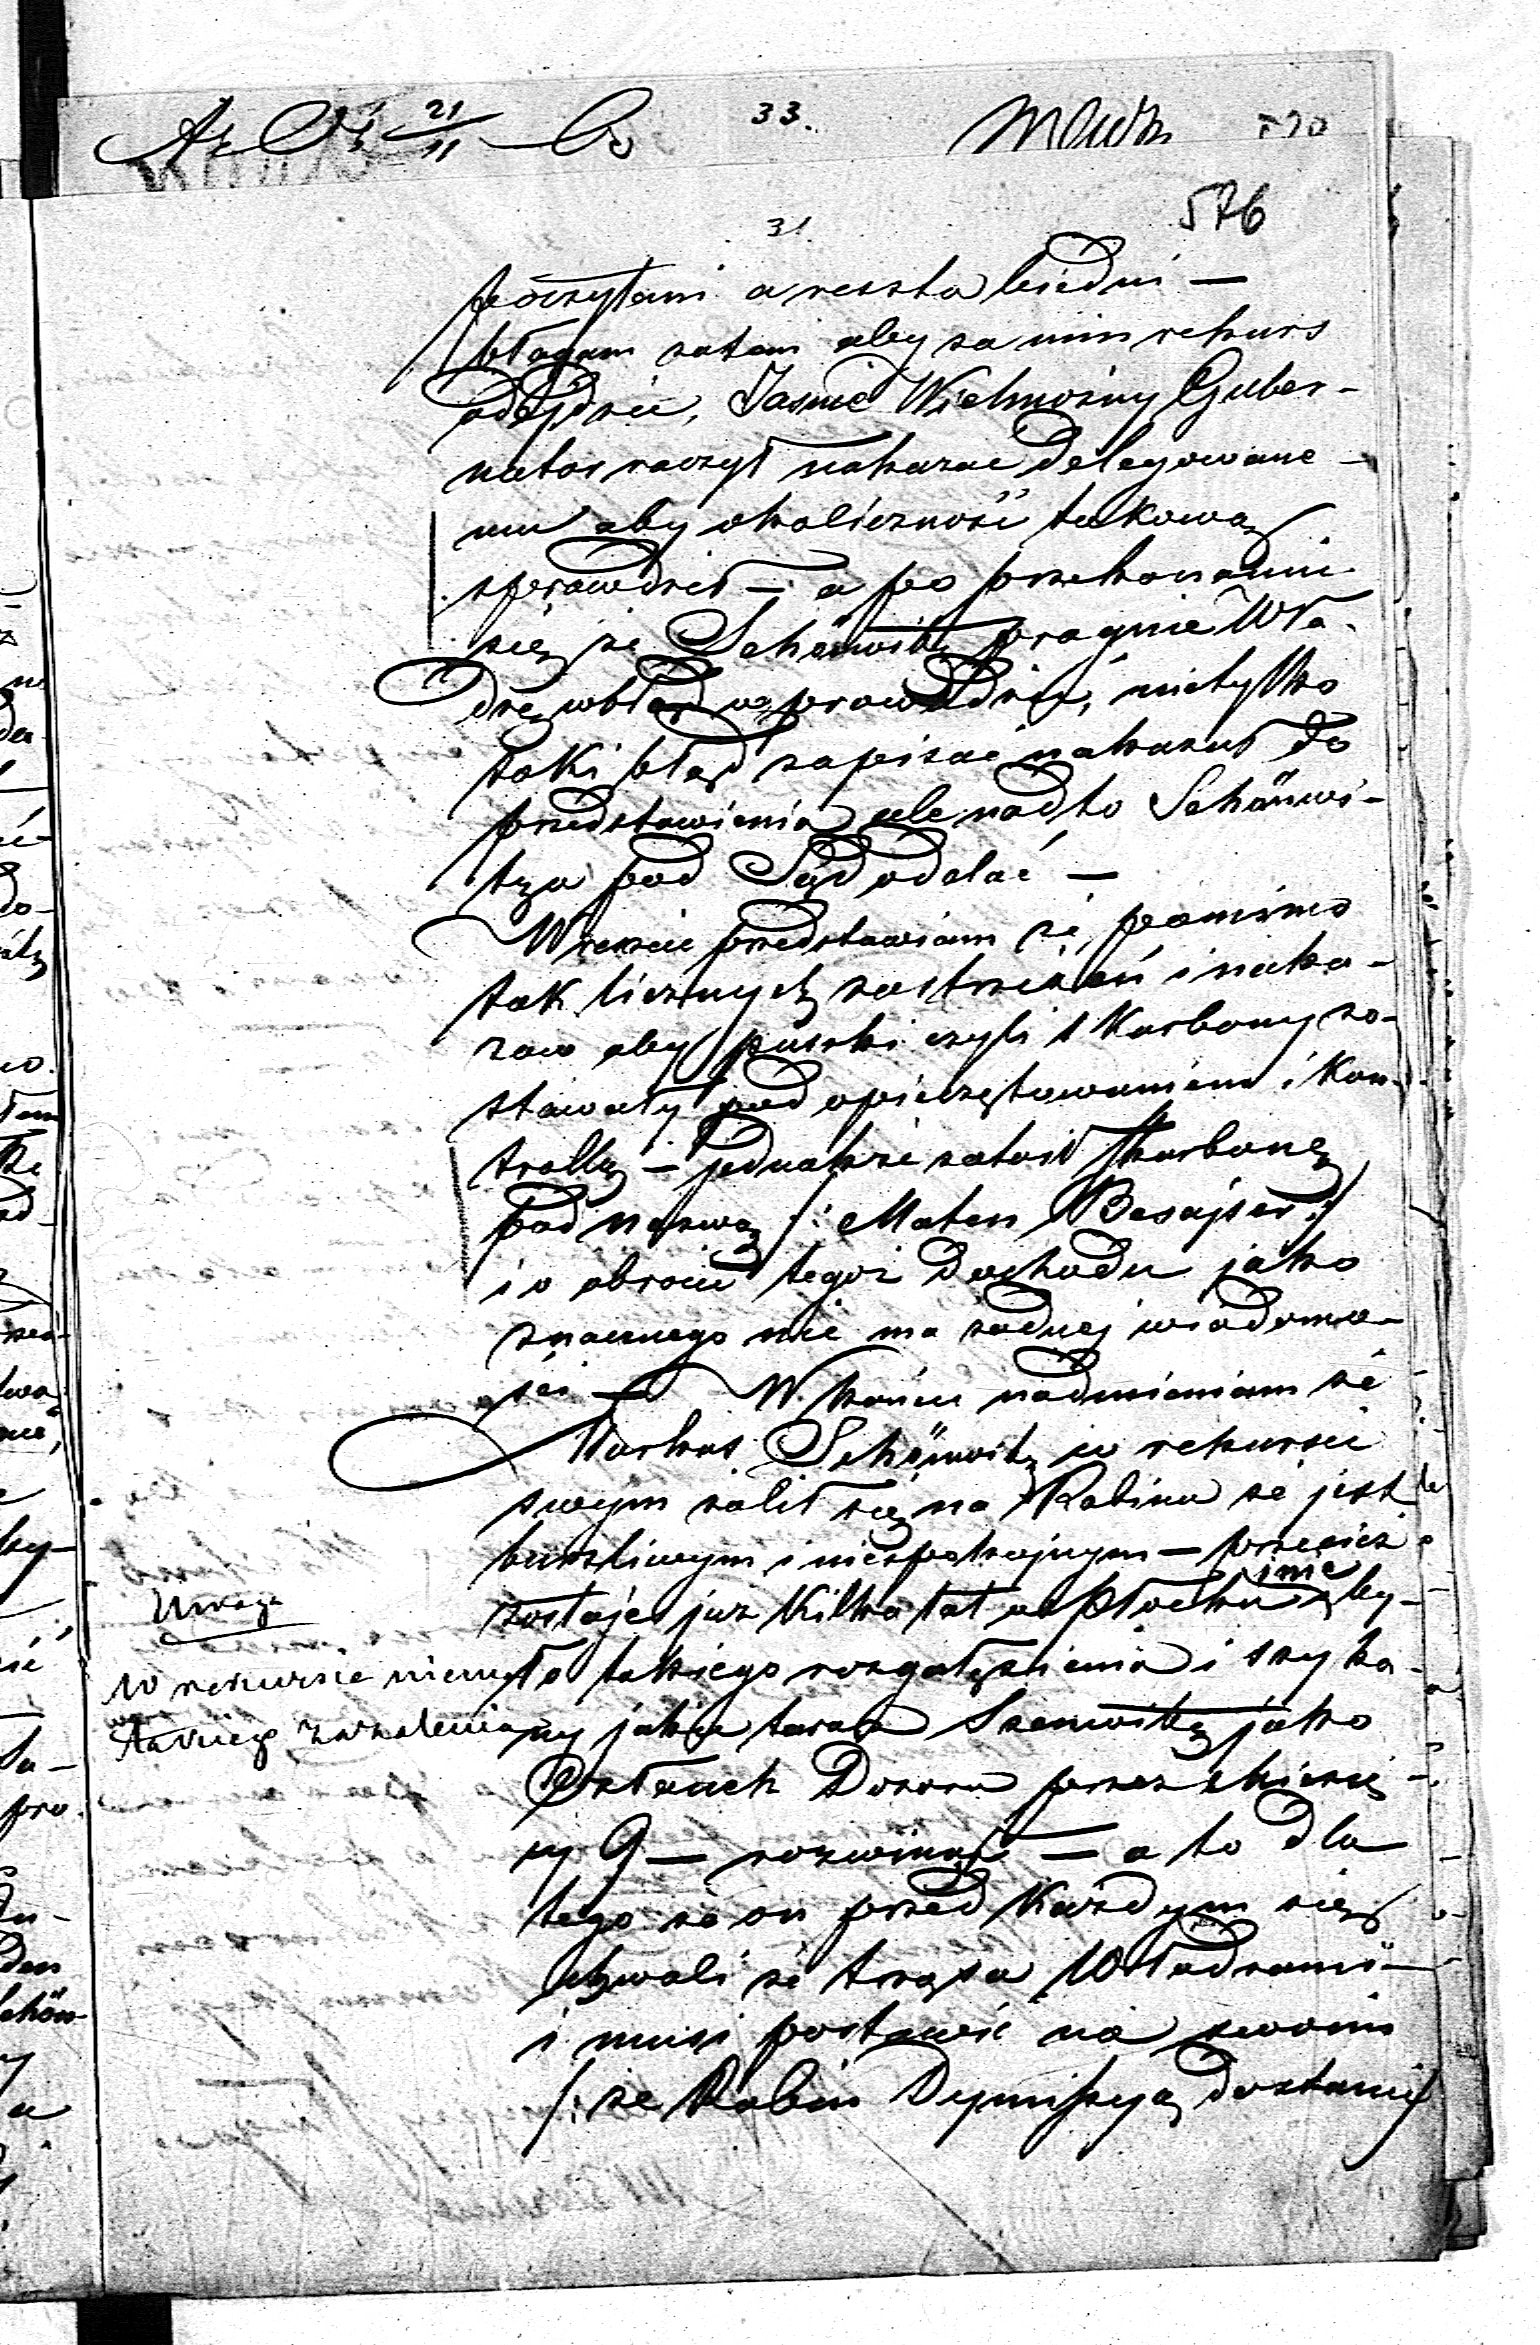 33.
576
31.
poczytani a reszta biedni —
błagam zatem aby za nim rekurs
odejdzie, Jaśnie Wielmożny Guber-
nator raczył nakazac Delegowane-
mu aby okoliczność takową
sprawdził — a po przekonaniu
się że Schönwitz pragnie Wła-
dzę wbłąd wprowadzić, nietylko
taki błąd zapisać nakazał do
przedstawienia ale nadto Schönwi-
tza pod Sąd oddać —
Wreszcie przedstawiam że pomimo
tak licznych zastrzeżeń i naka-
zow aby puszki czyli Skarbony zo-
stawały pod opieczętowaniem i kon-
trollą — jednakże zataił Skarbonę
pod nazwą /: Maten Besajser :/
i o obrocie tegoż dochodu jako
znacznego nie ma żadnej wiadomo-
ści — W końcu nadmieniam że
Markus Schönwitz w rekursie
swym żalił się na Rabina że jest
burzliwym i niespokojnym — przecież
zostaje już kilka lat w Płocku i nie by-
ło takiego rozgałęzienia i szyka-
ny jaką teraz Szenwitz jako
Członek Dozoru przez miesię-
cy 9 — rozwinął — a to dla
tego że on przed każdym się
chwali że trzęsie Władzami
i musi postawić na swoim
/: że Rabin Dymisyą dostanie
Uwaga
W rekursie niema
takiego zażalenia